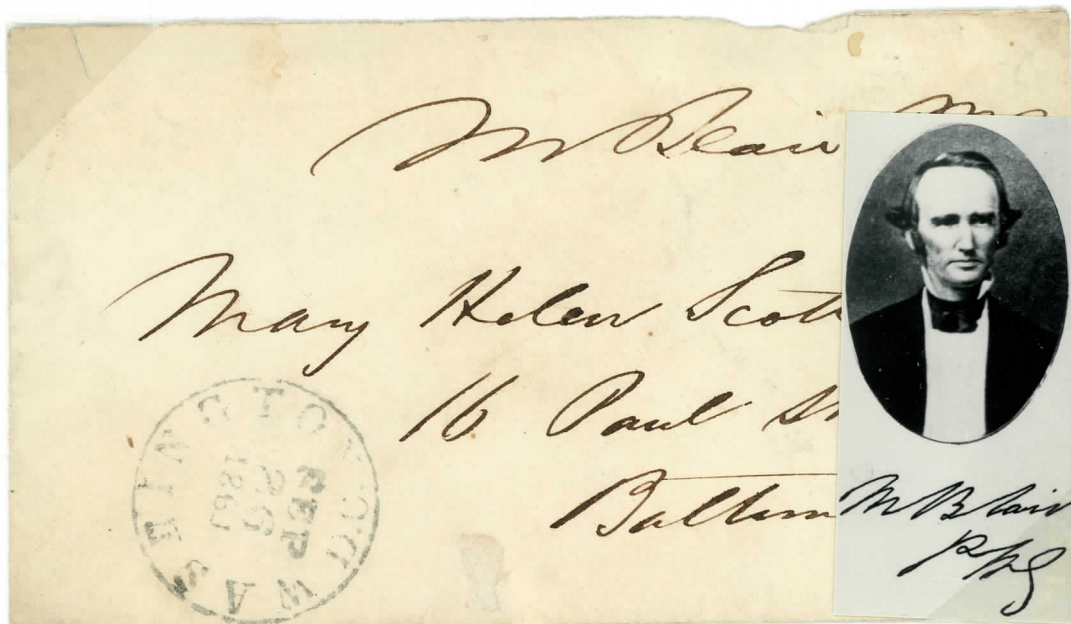 M Blair
Mary Helen Scott
16 Paul St
Baltim
WASHINGTON D.C.
SEP
26
1861
M Blair
PMG